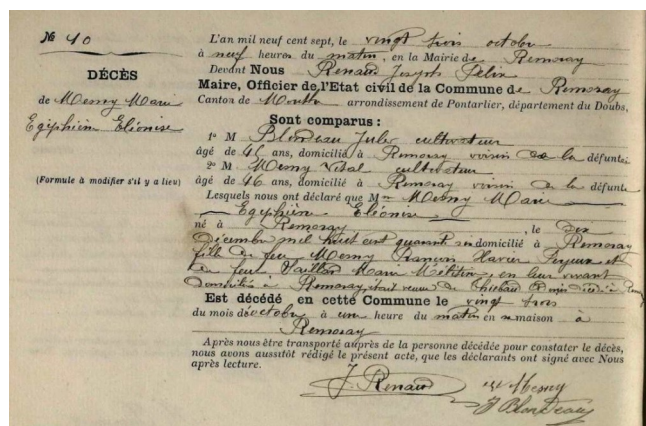 № 10
DÉCÈS
de Mesny Marie
Egiphien Elionise
(Formule à modifier s'il y a lieu)
L'an mil neuf cent sept, le vingt trois octobre
à neuf heures du matin, en la Mairie de Remoray
Devant Nous Renaud Joseph Félix
Maire, Officier de l'Etat civil de la Commune de Remoray
Canton de Mouthe arrondissement de Pontarlier, département du Doubs,
Sont comparus :
1º M Blondeau Jules cultivateur
âgé de 46 ans, domicilié à Remoray voisin de la défunte
2º M Mesny Vital cultivateur
âgé de 46 ans, domicilié à Remoray voisin de la défunte
Lesquels nous ont déclaré que M Mesny Marie
Egiphien Elionise
né à Remoray, le dix
Décembre mil huit cent quarante six domicilié à Remoray
fille de feu Mesny François Xavier et
de feu Vaillard Marie en leur vivant
domiciliés à Remoray, était veuve de Thiébaud
Est décédé en cette Commune le vingt trois
du mois de octobre à une heure du matin en sa maison à
Remoray
Après nous être transporté auprès de la personne décédée pour constater le décès,
nous avons aussitôt rédigé le présent acte, que les déclarants ont signé avec Nous
après lecture.
J Renaud
Mesny
J Blondeau